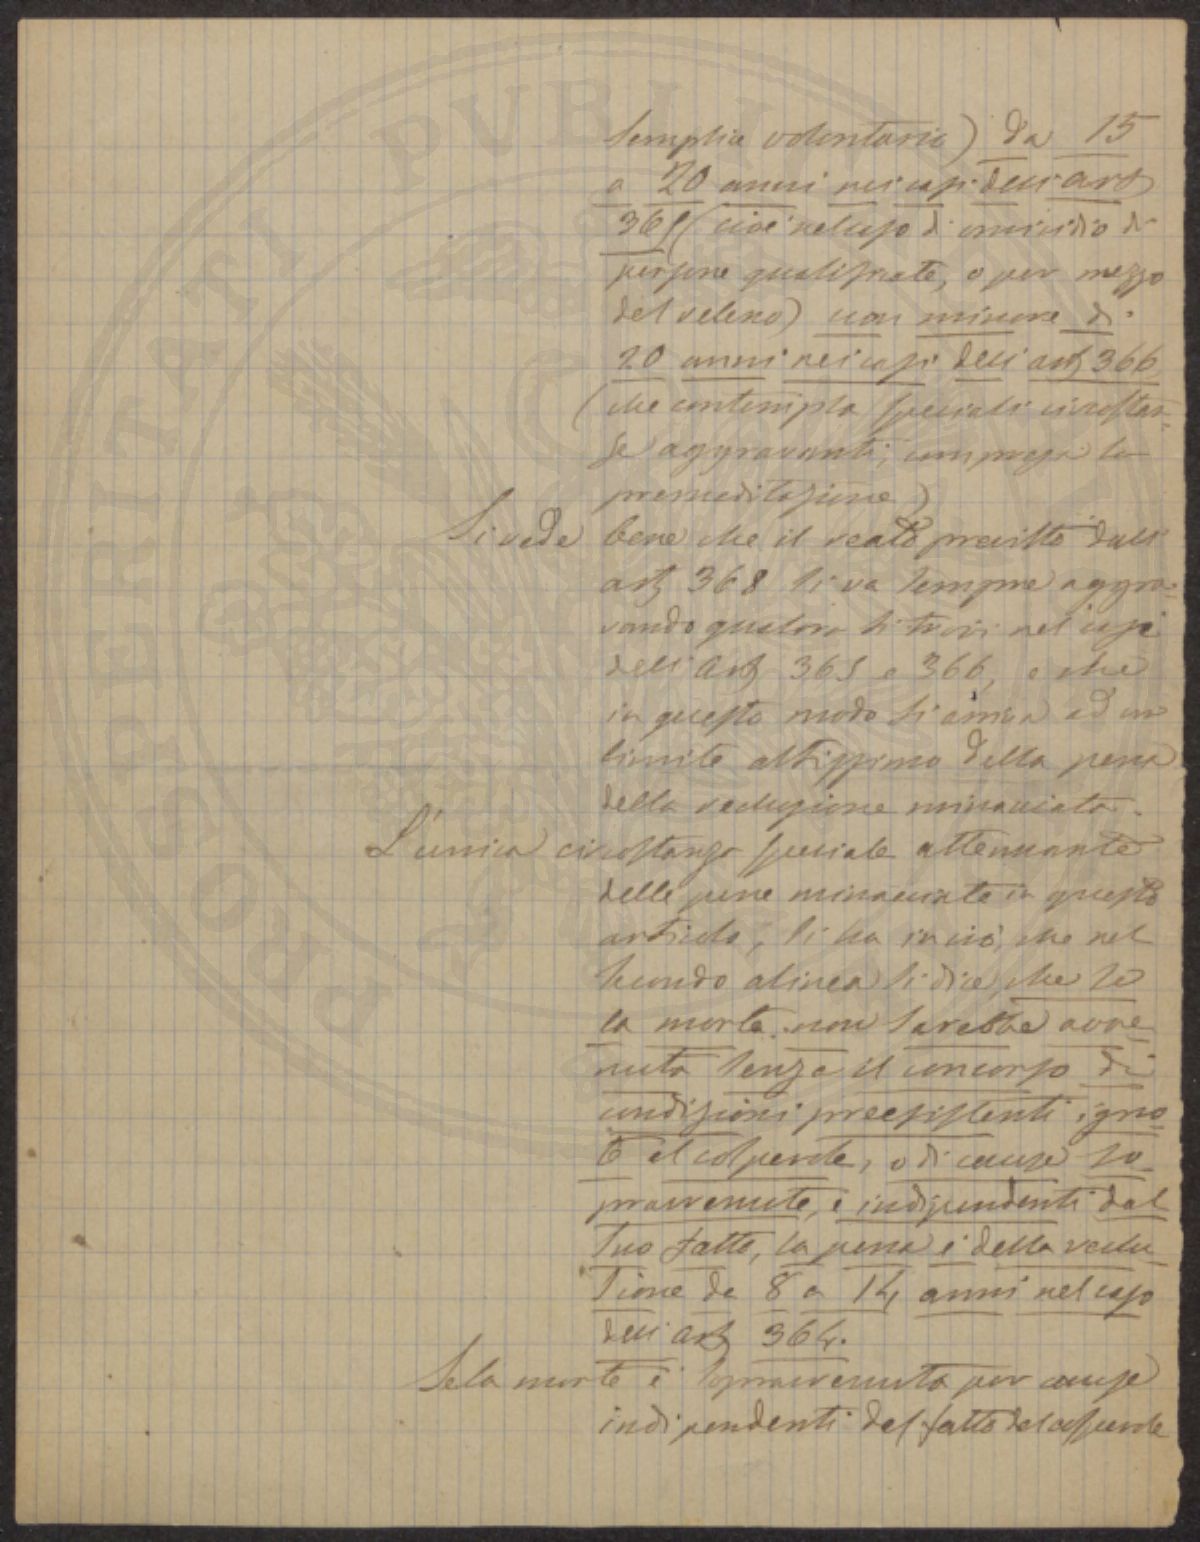 semplice volontario) da 15
a 20 anni nei casi dell'art
365 (cioè nel caso di omicidio di
persone qualificate, o per mezzo
del veleno) non minore di
20 anni nei casi dell'art 366
(che contempla speciali circostan-
ze aggravanti, compresa la
premeditazione)
Si vede bene che il reato previsto dall'
art 368 si va sempre aggra-
vando qualora si trovi nel caso
dell'art 365 e 366, e che
in questo modo si arriva ad un
limite altissimo della pena
della reclusione minacciata.
L'unica circostanza speciale attenuante
delle pene minacciate in questo
articolo, si ha in ciò, che nel
secondo alinea si dice, che se
la morte non sarebbe avve-
nuta senza il concorso di
condizioni preesistenti igno-
te al colpevole, o di cause so-
pravvenute, e indipendenti dal
suo fatto, la pena è della reclu-
sione da 8 a 14 anni nel caso
dell'art 364.
Se la morte è sopravvenuta per cause
indipendenti dal fatto del colpevole
PROSPERITATI PUBLI